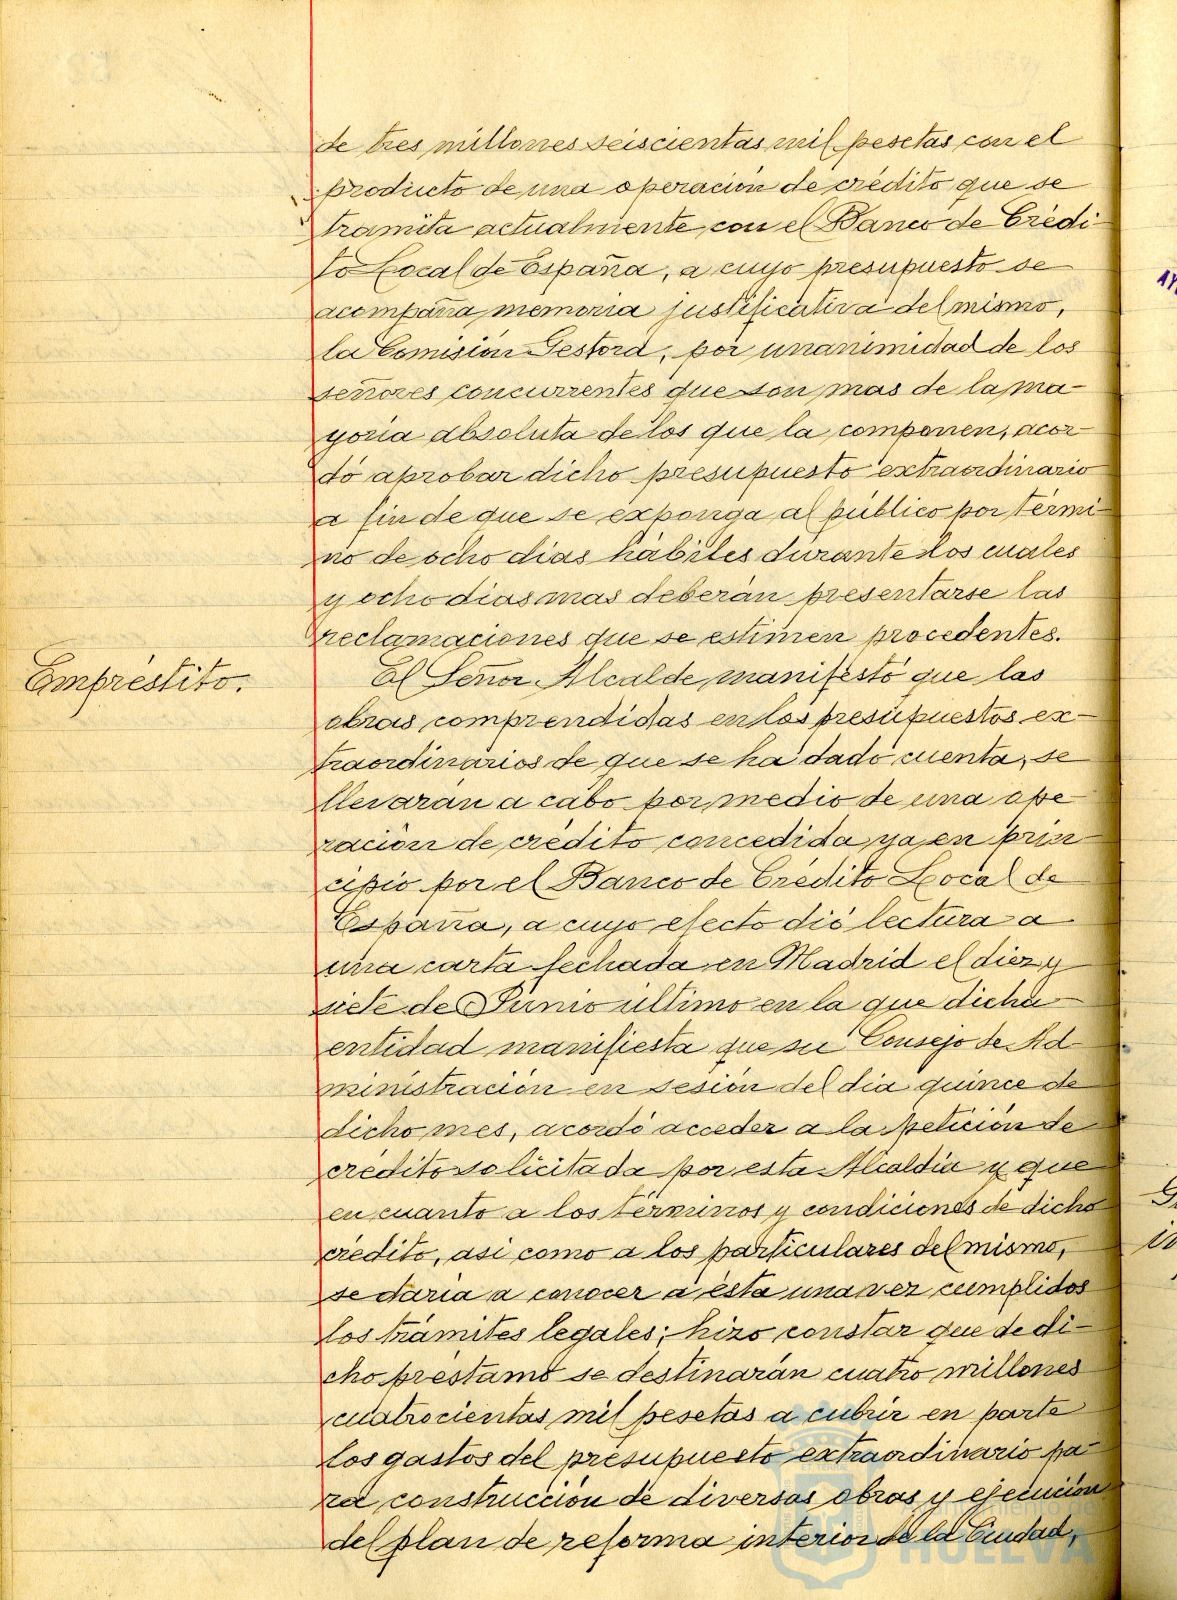 de tres millones seiscientas mil pesetas con el
producto de una operación de crédito que se
tramita actualmente con el Banco de Crédi-
to Local de España, a cuyo presupuesto se
acompaña memoria justificativa del mismo,
la Comisión Gestora, por unanimidad de los
señores concurrentes que son mas de la ma-
yoria absoluta de los que la componen, acor-
dó aprobar dicho presupuesto extraordinario
a fin de que se exponga al público por térmi-
no de ocho dias hábiles durante los cuales
y ocho dias mas deberán presentarse las
reclamaciones que se estimen procedentes.
Empréstito.
El Señor Alcalde manifestó que las
obras comprendidas en los presupuestos ex-
traordinarios de que se ha dado cuenta, se
llevarán a cabo por medio de una ope-
ración de crédito concedida ya en prin-
cipio por el Banco de Crédito Local de
España, a cuyo efecto dió lectura a
una carta fechada en Madrid el diez y
siete de Junio último en la que dicha
entidad manifiesta que su Consejo de Ad-
ministración en sesión del dia quince de
dicho mes, acordó acceder a la petición de
crédito solicitada por esta Alcaldia y que
en cuanto a los términos y condiciones de dicho
crédito, asi como a los particulares del mismo,
se daria a conocer a ésta una vez cumplidos
los trámites legales; hizo constar que de di-
cho préstamo se destinarán cuatro millones
cuatrocientas mil pesetas a cubrir en parte
los gastos del presupuesto extraordinario pa-
ra construcción de diversas obras y ejecución
del plan de reforma interior de la Ciudad,
HUELVA